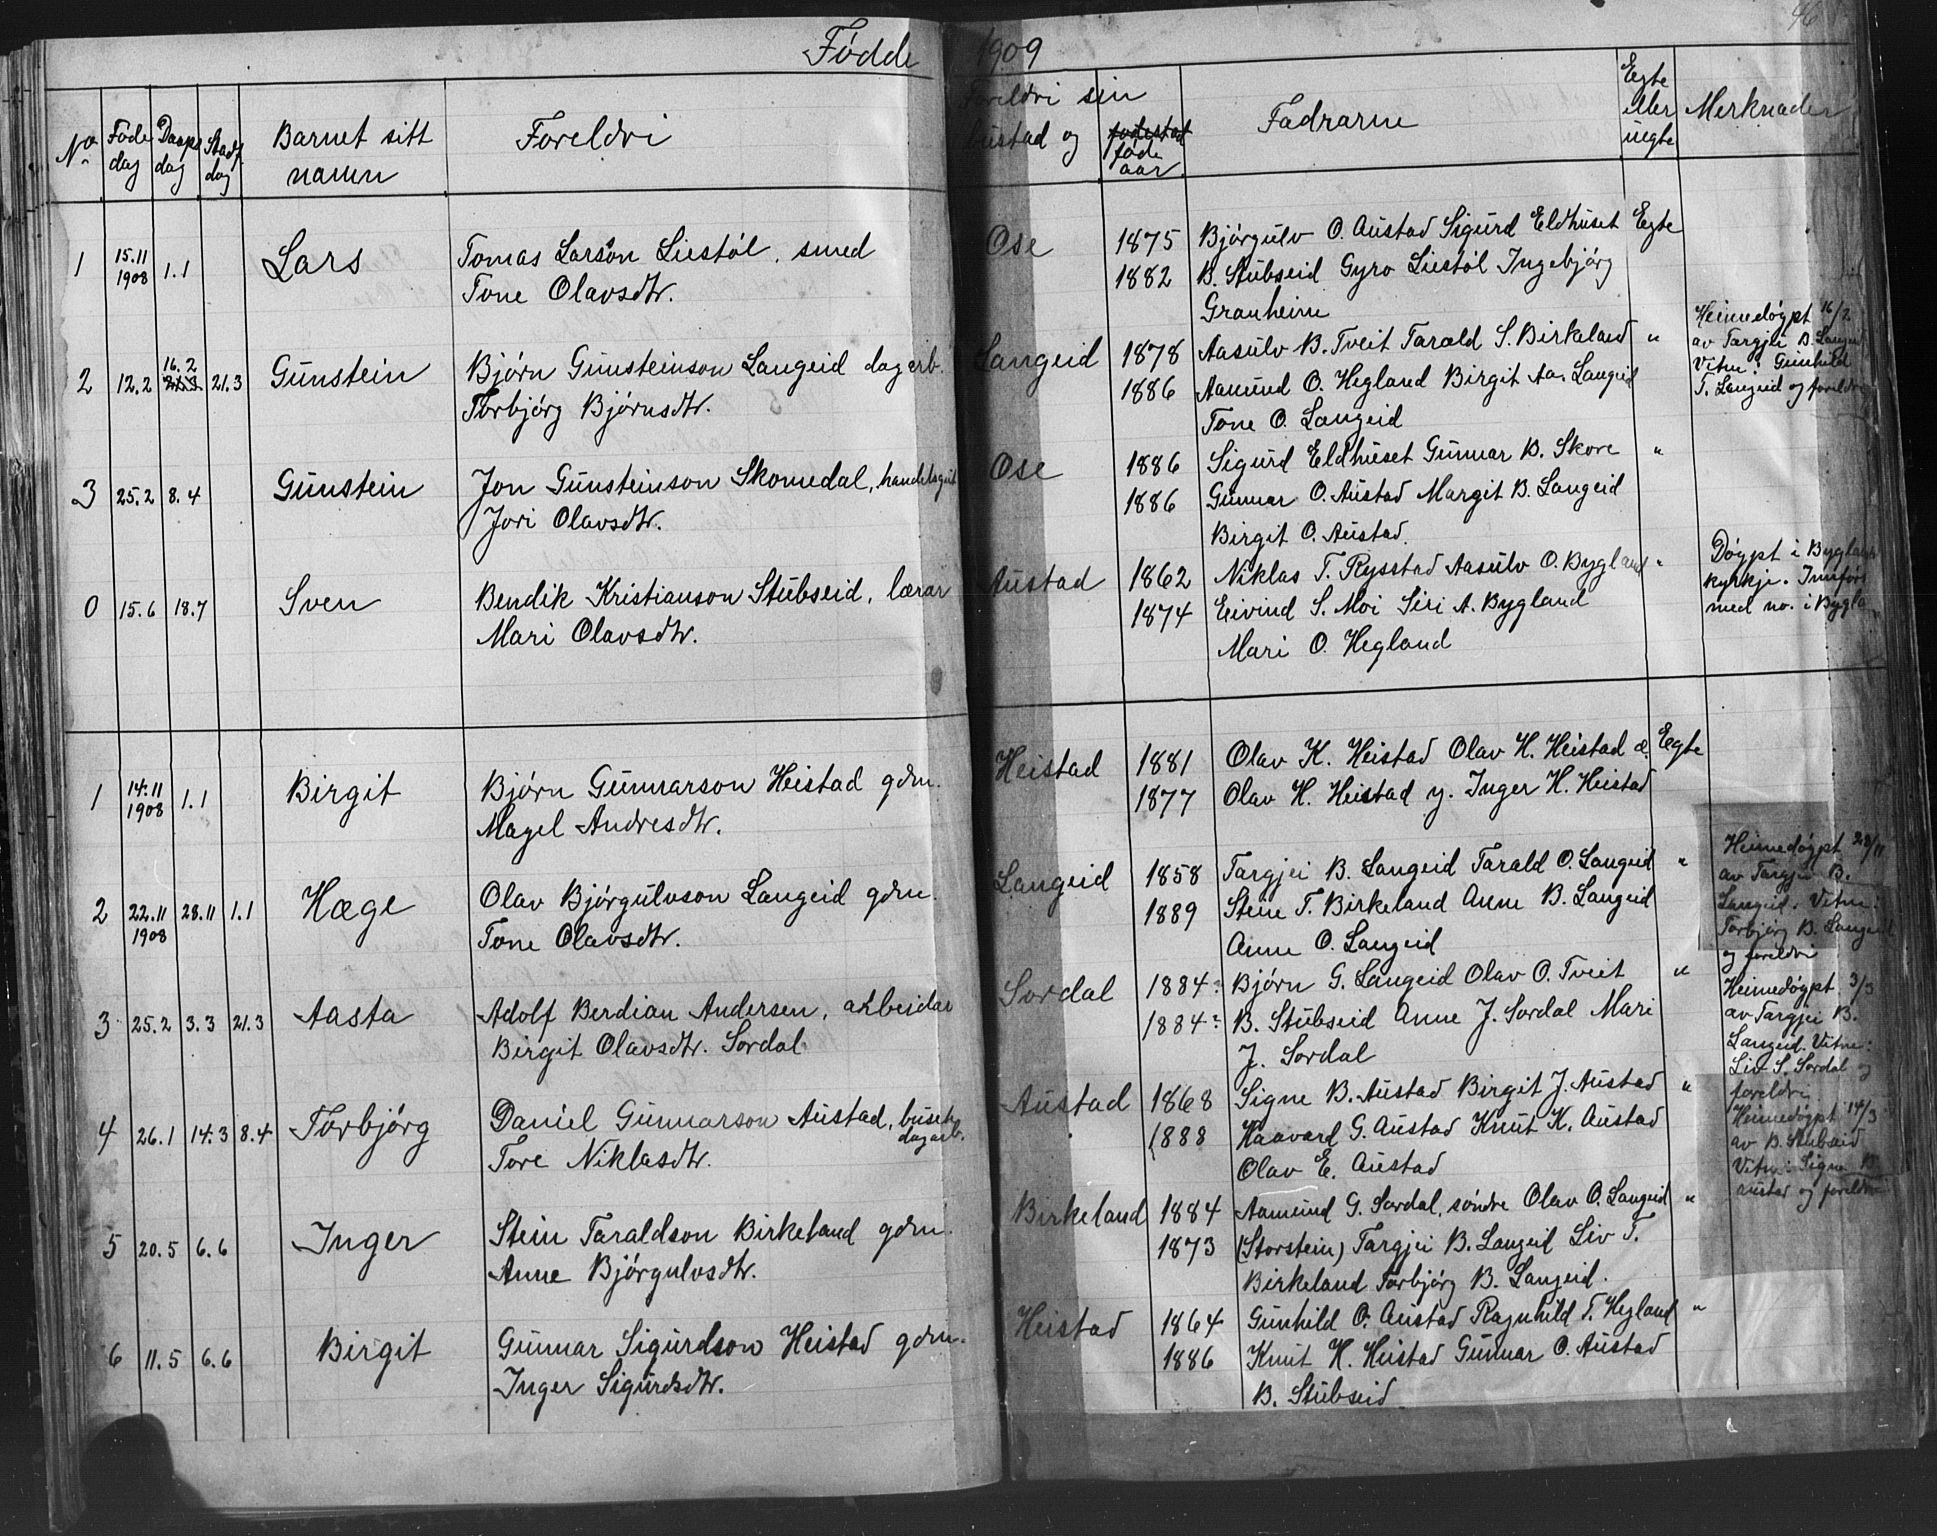 Fødde 1909
46
No
Føde dag
Daaps dag
Stadf dag
Barnet sitt namn
Foreldri
Foreldri sin bustad og
fødestad føde aar.
Fadrarne
Egte eller uegte
Merknader
1 15.11 1908 1.1 Lars
Tomas Larson Liestøl, smed
Tone Olavsdtr.
Ose 1875 1882
Bjørgulv O. Austad Sigurd Eldhuset Egte
B. Stubseid Gyro Liestøl Ingebjørg
Granheim
2 12.2 16.2 21.3 Gunstein
Bjørn Gunsteinson Langeid dagarb.
Torbjørg Bjørnsdtr.
Langeid 1878 1886
Aasulv B. Tveit Tarald S. Birkeland "
Aamund O. Hegland Birgit Aa. Langeid
Tone O. Langeid
Heimedøypt 16/2
av Targjei B. Langeid
Vitne: Gunhild
T. Langeid og foreldri
3 25.2 8.4 Gunstein
Jon Gunsteinson Skomedal, handelsgut
Jori Olavsdtr.
Ose 1886 1886
Sigurd Eldhuset Gunnar B. Skore "
Gunnar O. Austad Margit B. Langeid
Birgit O. Austad.
0 15.6 18.7 Sven
Bendik Kristianson Stubseid, lærar
Mari Olavsdtr.
Austad 1862 1874
Niklas T. Rysstad Aasulv O. Bygland "
Eivind S. Moi Siri A. Bygland
Mari O. Hegland
Døypt i Byglands
kyrkje. Innført
med no. i Bygland
1 14.11 1908 1.1 Birgit
Bjørn Gunnarson Heistad gdm.
Magel Andresdtr.
Heistad 1881 1877
Olav K. Heistad Olav H. Heistad e. Egte
Olav H. Heistad y. Inger H. Heistad
2 22.11 1908 28.11 1.1 Hæge
Olav Bjørgulvson Langeid gdm.
Tone Olavsdtr.
Langeid 1858 1889
Targjei B. Langeid Tarald O. Langeid "
Stein T. Birkeland Anne B. Langeid
Anne O. Langeid
Heimedøypt 28/11
av Targjei B.
Langeid. Vitne:
Torbjørg B. Langeid
og foreldri
3 25.2 3.3 21.3 Aasta
Adolf Berdian Andersen, arbeidar
Birgit Olavsdtr. Sordal
Sordal 1884 1884
Bjørn G. Langeid Olav O. Tveit "
B. Stubseid Anne J. Sordal Mari
J. Sordal
Heimedøypt 3/3
av Targjei B.
Langeid. Vitne:
Liv S. Sordal og
foreldri
4 26.1 14.3 8.4 Torbjørg
Daniel Gunnarson Austad, buset dagarb.
Tore Niklasdtr.
Austad 1868 1888
Signe B. Austad Birgit J. Austad "
Haavard G. Austad Knut K. Austad
Olav E. Austad
Heimedøypt 14/3
av B. Stubseid
Vitne: Signe B.
Austad og foreldri
5 20.5 6.6 Inger
Stein Taraldson Birkeland gdm.
Anne Bjørgulvsdtr.
Birkeland 1884 1873
Aamund G. Sordal, søndre Olav O. Langeid "
(Storstein) Targjei B. Langeid Liv T.
Birkeland Torbjørg B. Langeid.
6 11.5 6.6 Birgit
Gunnar Sigurdson Heistad gdm.
Inger Sigurdsdtr.
Heistad 1864 1886
Gunhild O. Austad Ragnhild T. Hegland "
Knut H. Heistad Gunnar O. Austad
B. Stubseid